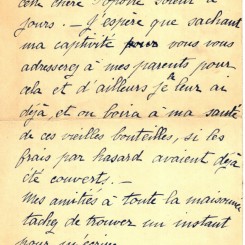 cette chère Popote
jours. — J'espère que sachant
ma captivité pour vous vous
adresserez à mes parents pour
cela et d'ailleurs je leur ai
déjà, et on boira à ma santé
de ces vieilles bouteilles, si les
frais par hasard avaient déjà
été couverts. —
Mes amitiés à toute la maisonnée
tachez de trouver un instant
pour